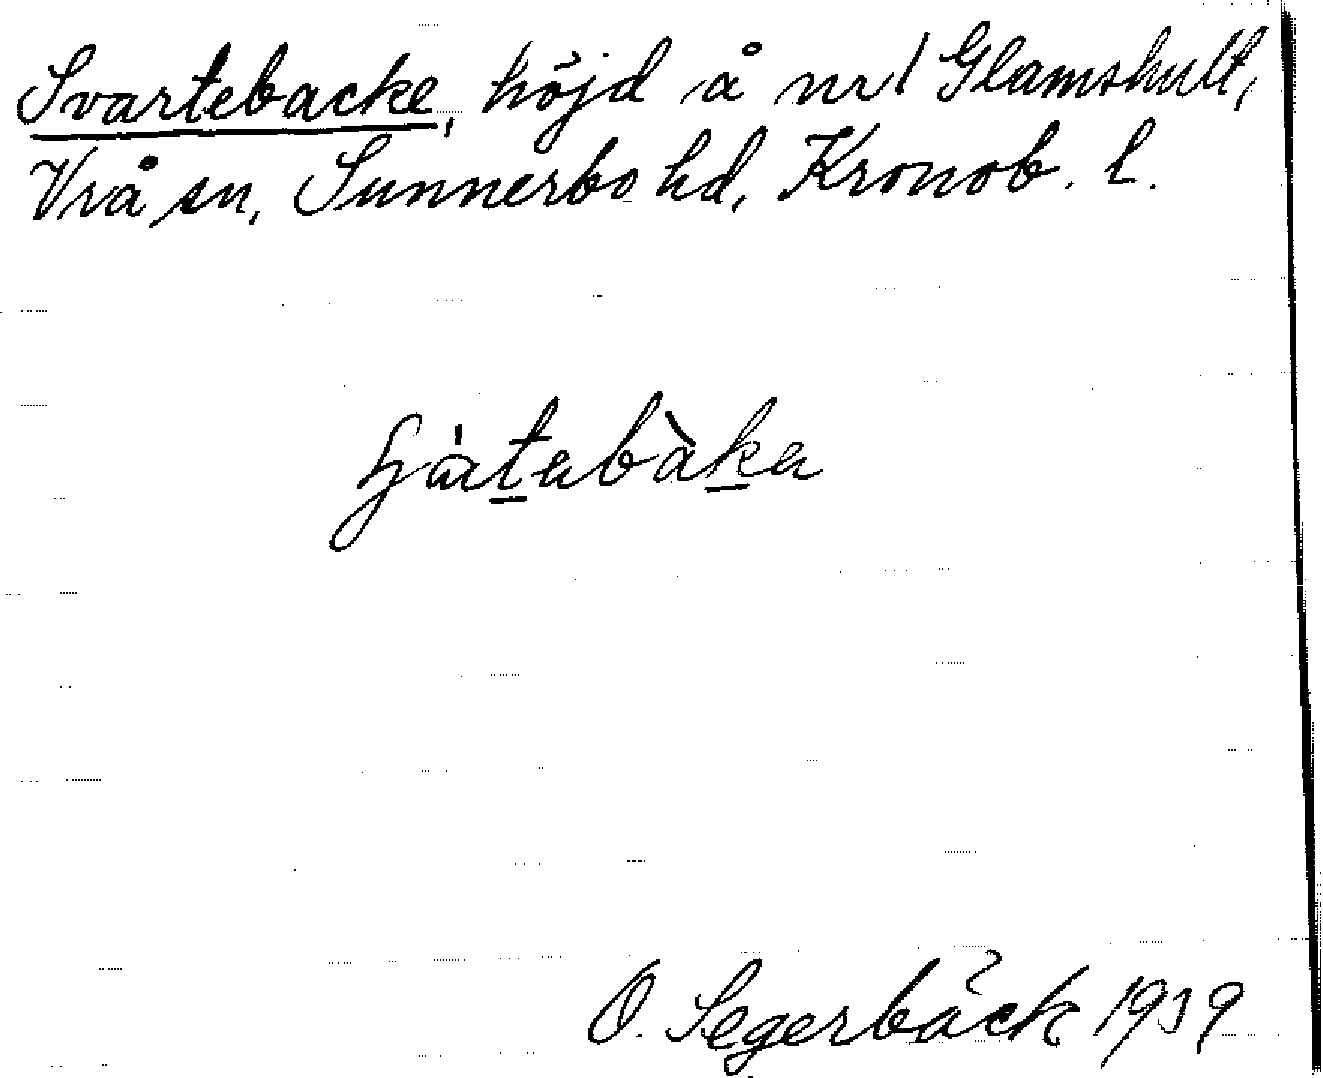 Svartebacke, höjd å nr 1 Glamshult,
Vrå sn, Sunnerbo hd, Kronob. l.
O. Segerbäck 1939